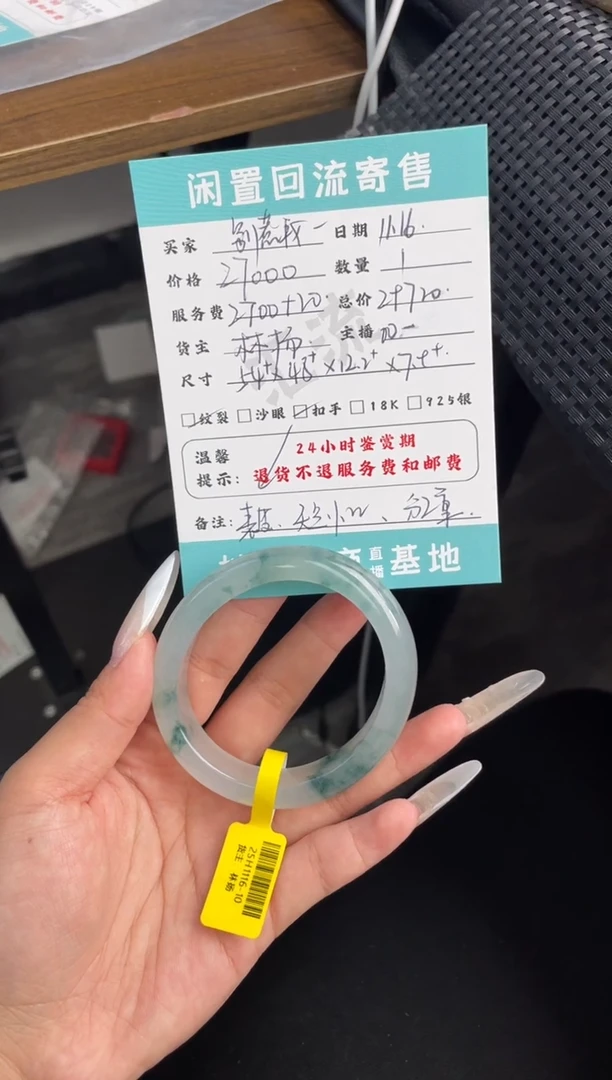 闲置回流寄售
买家 日期 11.16.
价格 27000 数量 1
服务费 2700+20 总价 29720.
货主 林杨 主播
尺寸 54⁺×48⁺×12.2⁺×7.9⁺.
纹裂 沙眼 扣手 18K 925银
温馨 24小时鉴赏期
提示: 退货不退服务费和邮费
备注:
直播 基地
25H1116-10
货主 林杨